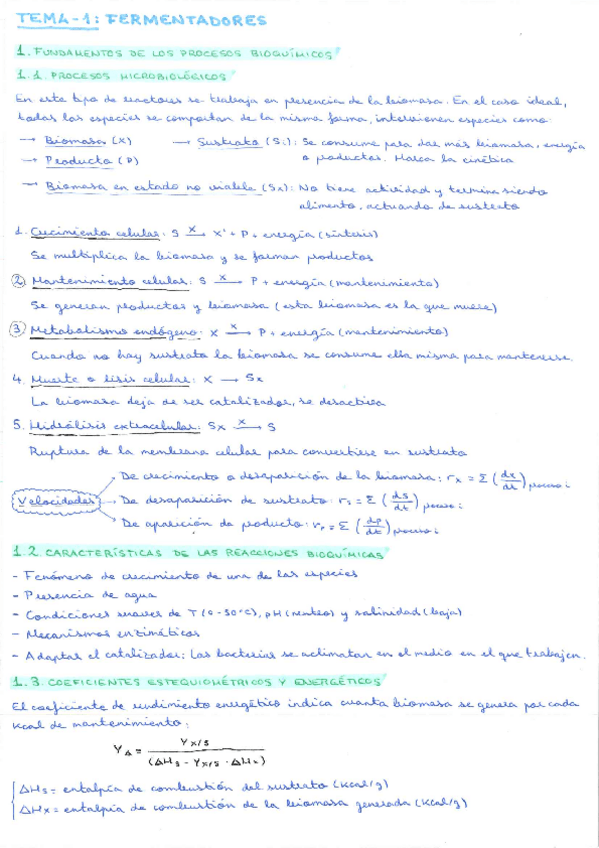 TEMA-1: FERMENTADORES
1. FUNDAMENTOS DE LOS PROCESOS BIOQUÍMICOS
1.1. PROCESOS MICROBIOLÓGICOS
En este tipo de reactores se trabaja en presencia de la biomasa. En el caso ideal,
todas las especies se comportan de la misma forma, intervienen especies como:
→ Biomasa (X) → Sustrato (Si): Se consume para dar más biomasa, energía
→ Producto (P) o productos. Marca la cinética
→ Biomasa en estado no viable (Sx): No tiene actividad y termina siendo
alimento, actuando de sustrato
1. Crecimiento celular: S →(X) X' + P + energía (síntesis)
Se multiplica la biomasa y se forman productos
2. Mantenimiento celular: S →(X) P + energía (mantenimiento)
Se generan productos y biomasa (esta biomasa es la que muere)
3. Metabolismo endógeno: X →(X) P + energía (mantenimiento)
Cuando no hay sustrato la biomasa se consume ella misma para mantenerse.
4. Muerte o lisis celular: X → Sx
La biomasa deja de ser catalizador, se desactiva
5. Hidrólisis extracelular: Sx →(X) S
Ruptura de la membrana celular para convertirse en sustrato
De crecimiento o desaparición de la biomasa: rx = Σ (dx/dt) proceso i
Velocidades → De desaparición de sustrato: rs = Σ (dS/dt) proceso i
De aparición de producto: rp = Σ (dp/dt) proceso i
1.2. CARACTERÍSTICAS DE LAS REACCIONES BIOQUÍMICAS
- Fenómeno de crecimiento de una de las especies
- Presencia de agua
- Condiciones suaves de T (0-50°C), pH (neutro) y salinidad (baja)
- Mecanismos enzimáticos
- Adaptar el catalizador: Las bacterias se aclimatan en el medio en el que trabajan.
1.3. COEFICIENTES ESTEQUIOMÉTRICOS Y ENERGÉTICOS
El coeficiente de rendimiento energético indica cuanta biomasa se genera por cada
Kcal de mantenimiento:
YΔ = Yx/s / (ΔHs - Yx/s · ΔHx)
ΔHs = entalpía de combustión del sustrato (Kcal/g)
ΔHx = entalpía de combustión de la biomasa generada (Kcal/g)